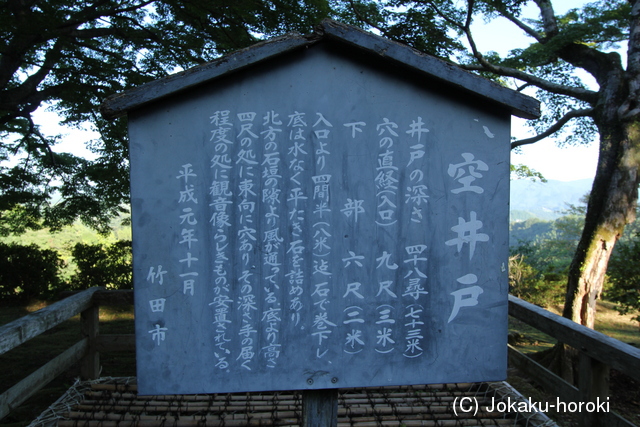 空井戸
井戸の深さ 四十八尋(七十三米)
穴の直経(入口) 九尺(三米)
下部 六尺(二米)
入口より四間半(八米)迄石で巻下し、
底は水なく平たき石を詰めあり。
北方の石垣の隙より風が通っている。底より高さ
四尺の処に東向に穴あり。その深さ手の届く
程度の処に観音像らしきものが安置されている。
平成元年十一月
竹田市
(C) Jokaku-horoki